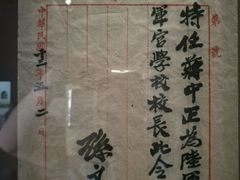 第 號
特任蔣中正為陸軍
軍官學校校長此令
孫文
中華民國 年五月 日